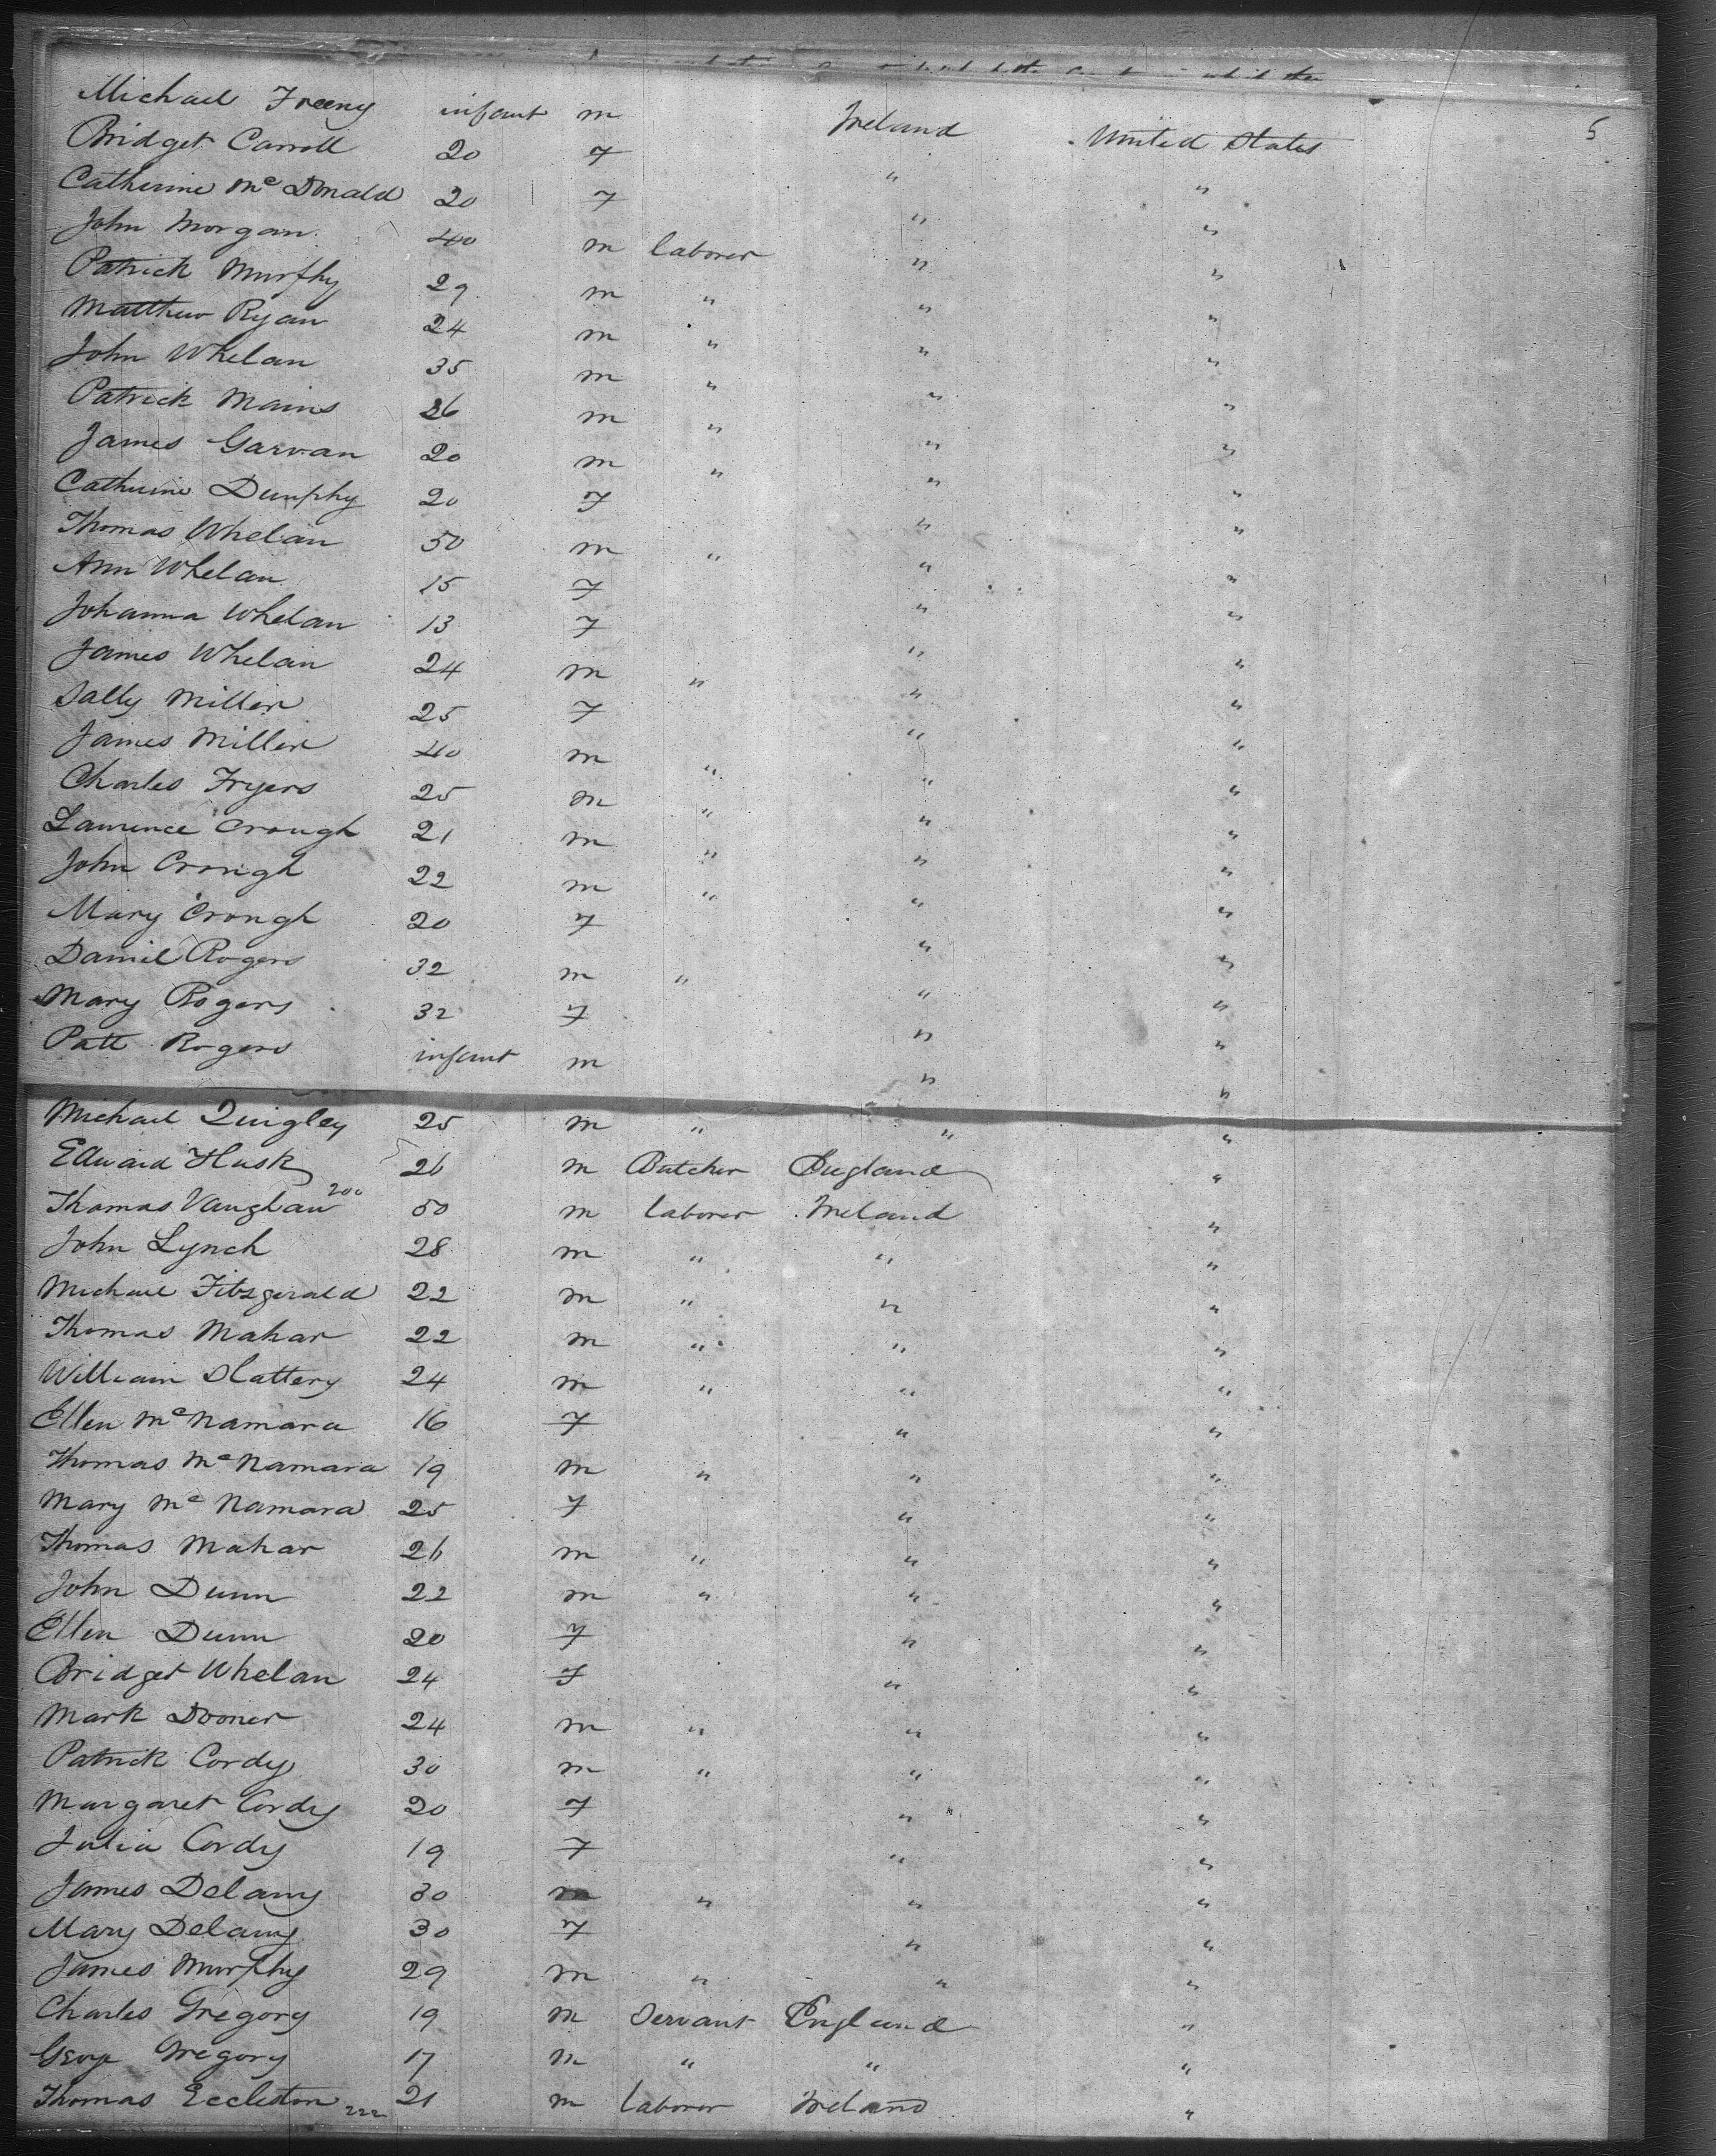 5
Michael Freeny infant m Ireland United States
Bridget Carroll 20 f " "
Catherine Mc Donald 20 f " "
John Morgan 40 m laborer " "
Patrick Murphy 29 m " " "
Matthew Ryan 24 m " " "
John Whelan 35 m " " "
Patrick Mains 26 m " " "
James Garvan 20 m " " "
Catherine Dunphy 20 f " "
Thomas Whelan 50 m " " "
Ann Whelan 15 f " "
Johanna Whelan 13 f " "
James Whelan 24 m " " "
Sally Miller 25 f " "
James Miller 40 m " " "
Charles Fryers 25 m " " "
Laurence Crough 21 m " " "
John Crough 22 m " " "
Mary Crough 20 f " "
Daniel Rogers 32 m " " "
Mary Rogers 32 f " "
Patt Rogers infant m " "
Michael Quigley 25 m " " "
Edward Husk 26 m Butcher England "
Thomas Vaughan 200 50 m laborer Ireland "
John Lynch 28 m " " "
Michael Fitzgerald 22 m " " "
Thomas Mahar 22 m " " "
William Slattery 24 m " " "
Ellen Mc Namara 16 f " "
Thomas Mc Namara 19 m " " "
Mary Mc Namara 25 f " "
Thomas Mahar 26 m " " "
John Dunn 22 m " " "
Ellen Dunn 20 f " "
Bridget Whelan 24 f " "
Mark Dooner 24 m " " "
Patrick Cordy 30 m " " "
Margaret Cordy 20 f " "
Julia Cordy 19 f " "
James Delany 30 m " " "
Mary Delany 30 f " "
James Murphy 29 m " " "
Charles Gregory 19 m Servant England "
George Gregory 17 m " " "
Thomas Eccleston 222 21 m laborer Ireland "